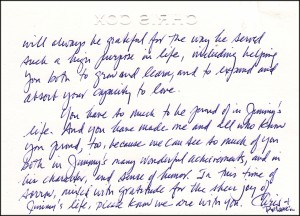 CHRIS COX
will always be grateful for the way he served
such a high purpose in life, including helping
you both to grow and learn, and to expand and
your capacity to love.
You have so much to be proud of in Jimmy's
life. And you have made me and all who know
you proud, too, because we can see so much of you
both in Jimmy's many wonderful achievements, and in
his character, and sense of humor. In this time of
sorrow, mixed with gratitude for the sheer joy of
Jimmy's life, please know we are with you. Chris +
Rebecca